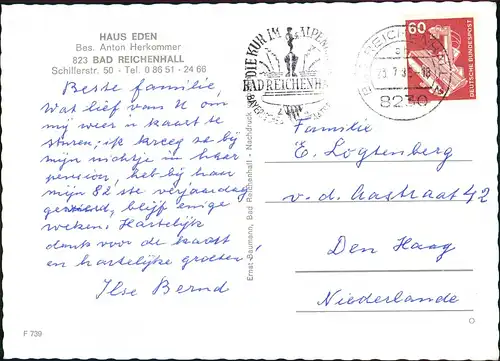 HAUS EDEN
Bes. Anton Herkommer
823 BAD REICHENHALL
Schillerstr. 50 - Tel. 0 86 51 - 24 66
Beste familie,
Wat lief van U om
mij weer 'n kaart te
sturen, ik kreeg ze bij
mijn nichtje in haar
pension, heb bij haar
mijn 82 ste verjaardag
gevierd, blijf enige
weken. Hartelijk
dank voor de kaart
en hartelijke groeten!
Ilse Bernd
F 739
Ernst Baumann, Bad Reichenhall - Nachdruck
DIE KUR IM ALPEN
BAD REICHENHALL
8230
60
DEUTSCHE BUNDESPOST
Familie
E. Logtenberg
v. d. Aastraat 42
Den Haag
Niederlande